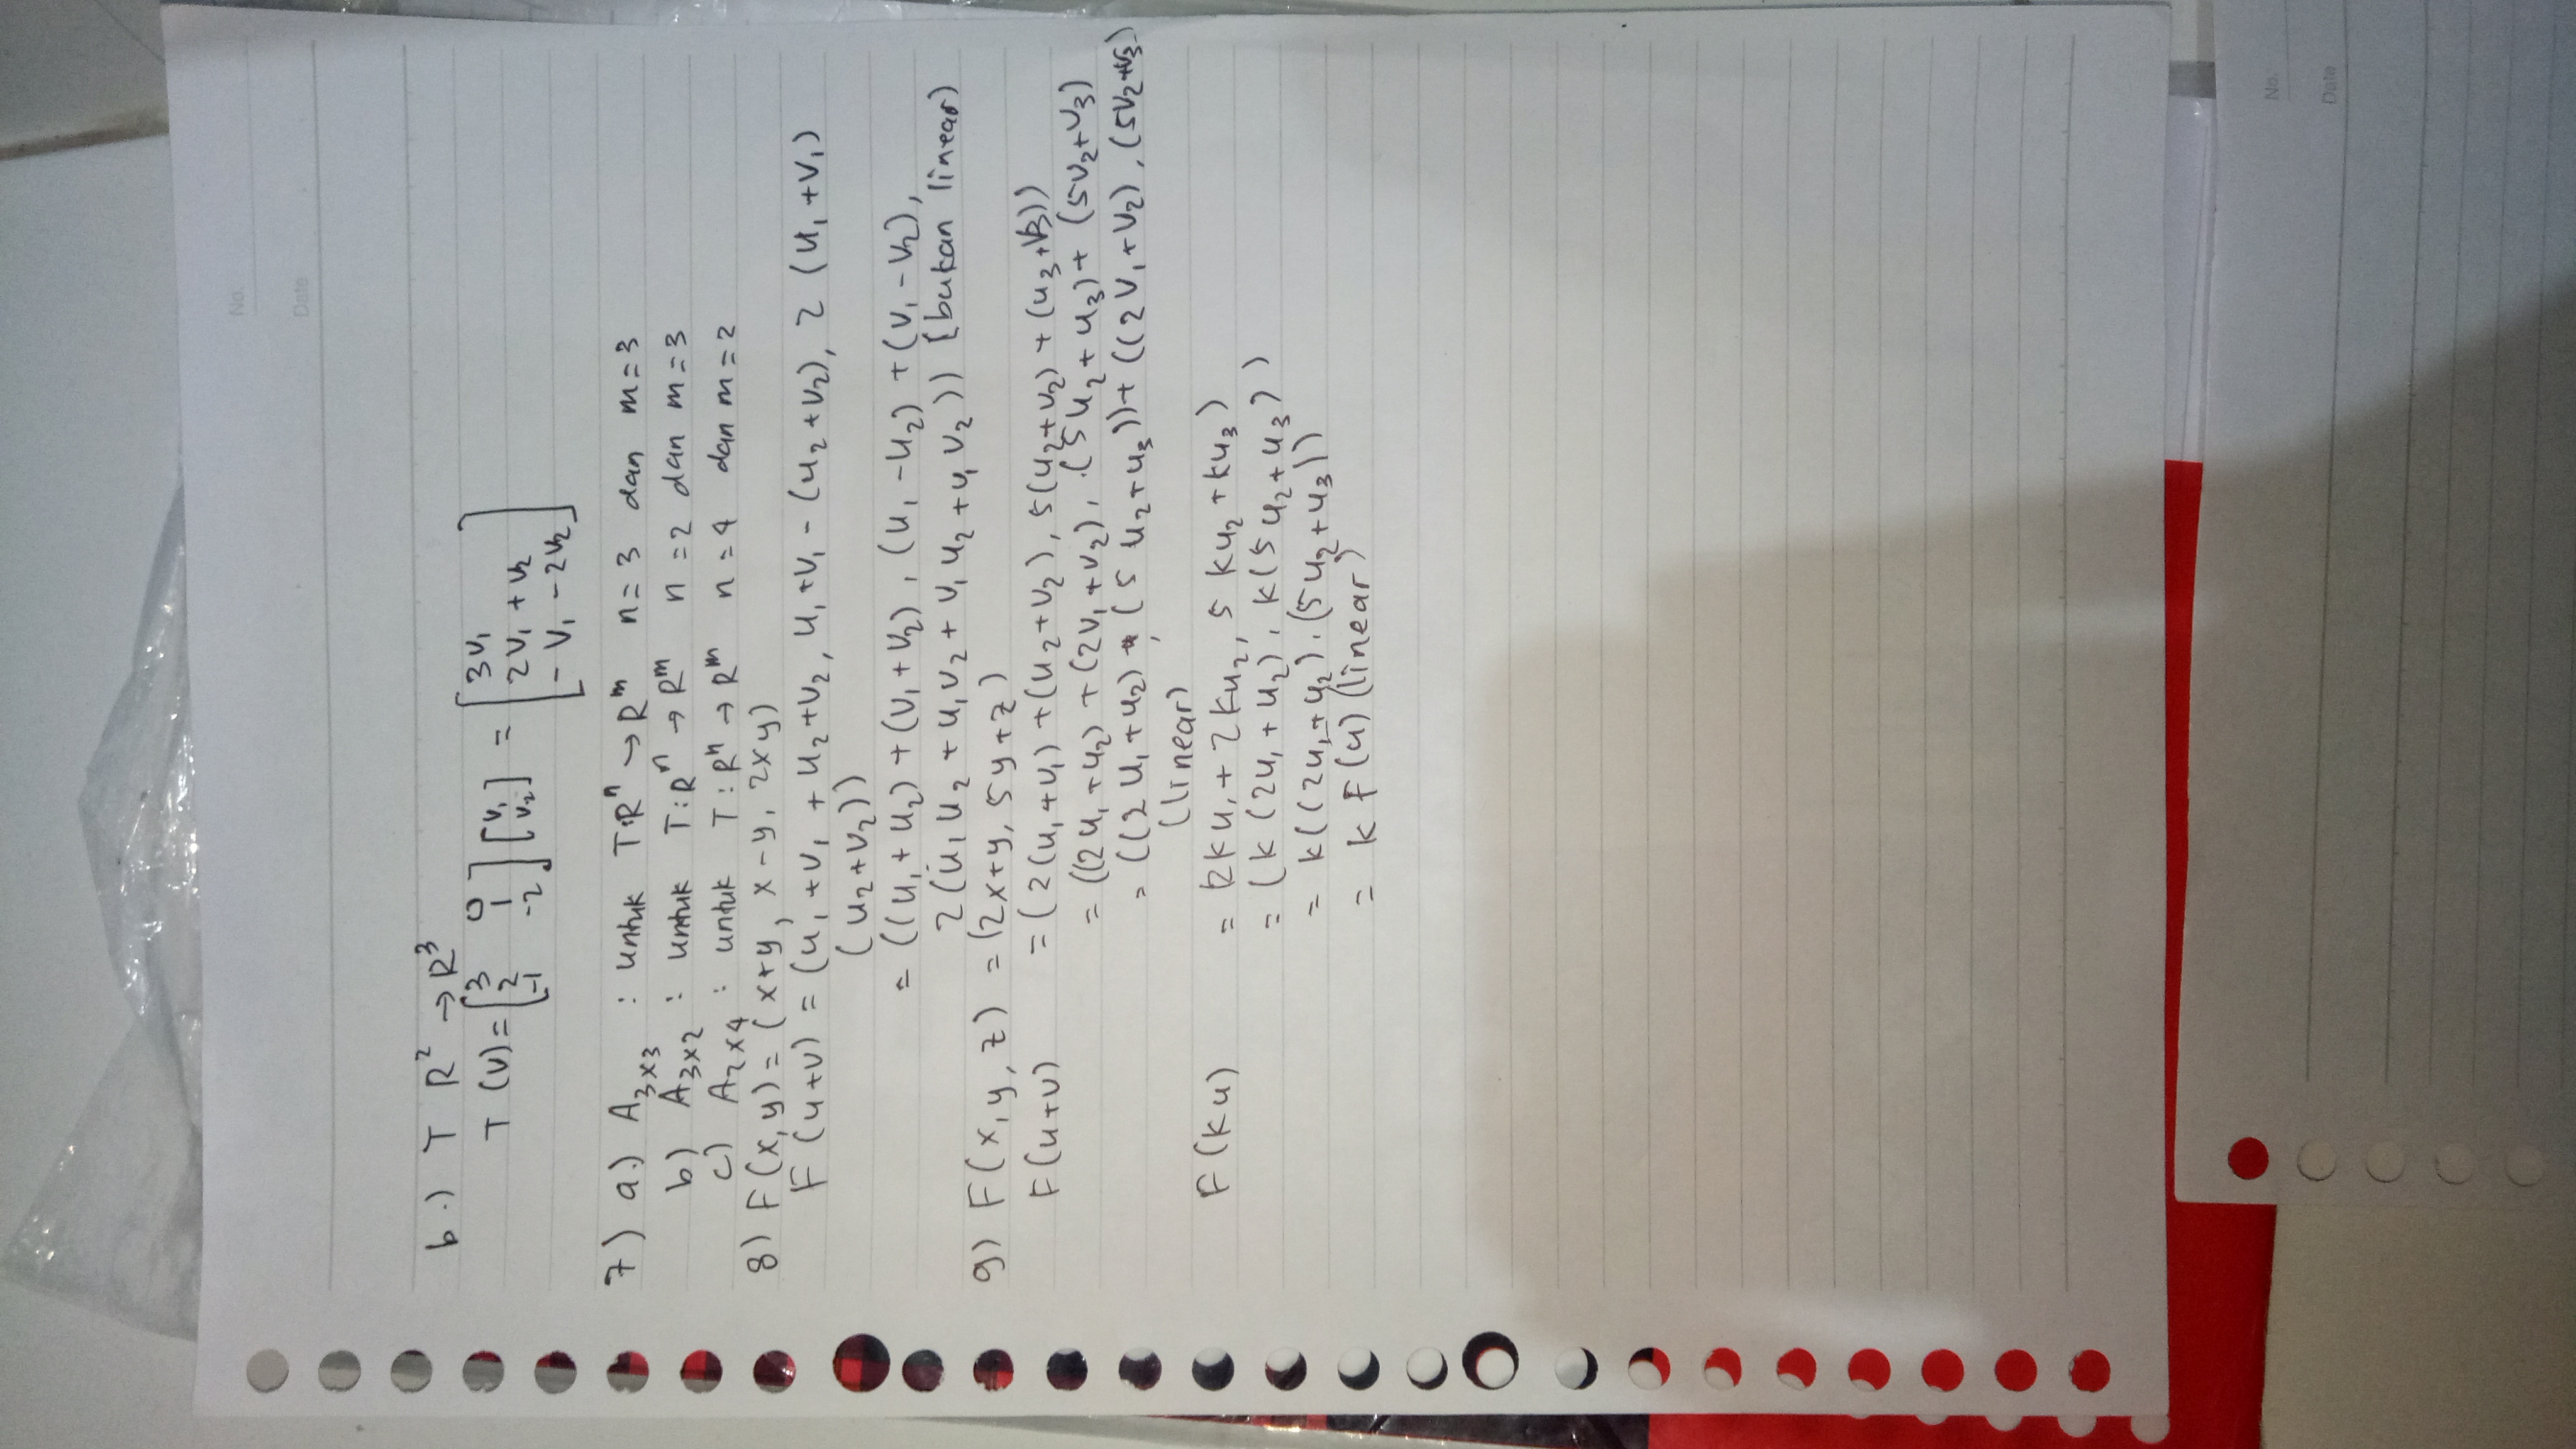 No.
Date
b.) T R² → R³
T (V) = [3 0; 2 1; -1 -2] [V₁; V₂] = [3V₁; 2V₁ + V₂; - V₁ - 2V₂]
7) a.) A₃ₓ₃ : untuk T:Rⁿ → Rᵐ n = 3 dan m = 3
b) A₃ₓ₂ : untuk T : Rⁿ → Rᵐ n = 2 dan m = 3
c) A₂ₓ₄ : untuk T : Rⁿ → Rᵐ n = 4 dan m = 2
8) F(x,y) = (x+y, x-y, 2xy)
F (u+v) = (u₁ + v₁ + u₂ + v₂, u₁ + v₁ - (u₂ + v₂), 2 (u₁ + v₁)
(u₂ + v₂))
= ((u₁ + u₂) + (v₁ + v₂), (u₁ - u₂) + (v₁ - v₂),
2(u₁ u₂ + u₁ v₂ + v₁ u₂ + v₁ v₂)) (bukan linear)
9) F(x, y, z) = (2x+y, 5y+z)
F(u+v) = (2(u₁ + v₁) + (u₂ + v₂), 5(u₂ + v₂) + (u₃ + v₃))
= ((2u₁ + u₂) + (2v₁ + v₂), (5u₂ + u₃) + (5v₂ + v₃)
= ((2u₁ + u₂) , (5 u₂ + u₃)) + ((2v₁ + v₂), (5v₂ + v₃)
(linear)
F(ku) = (2ku₁ + 2ku₂, 5 ku₂ + ku₃)
= (k (2u₁ + u₂), k(5 u₂ + u₃))
= k((2u₁ + u₂), (5u₂ + u₃))
= k F(u) (linear)
No.
Date